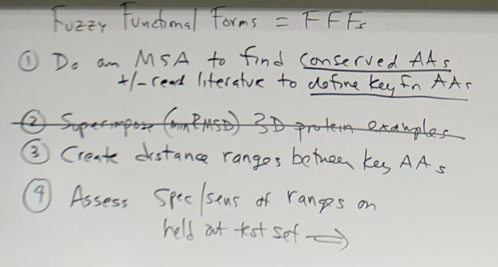 Fuzzy Functional Forms = FFFs
① Do an MSA to find conserved AAs
+/- read literature to define key fn AAs
② Superimpose (min RMSD) 3D protein examples
③ Create distance ranges between key AAs
④ Assess spec/sens of ranges on
held out test set →